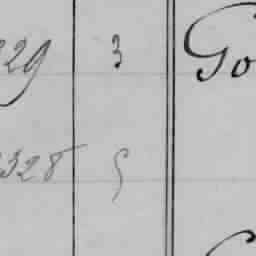 229 3 Go
328 5